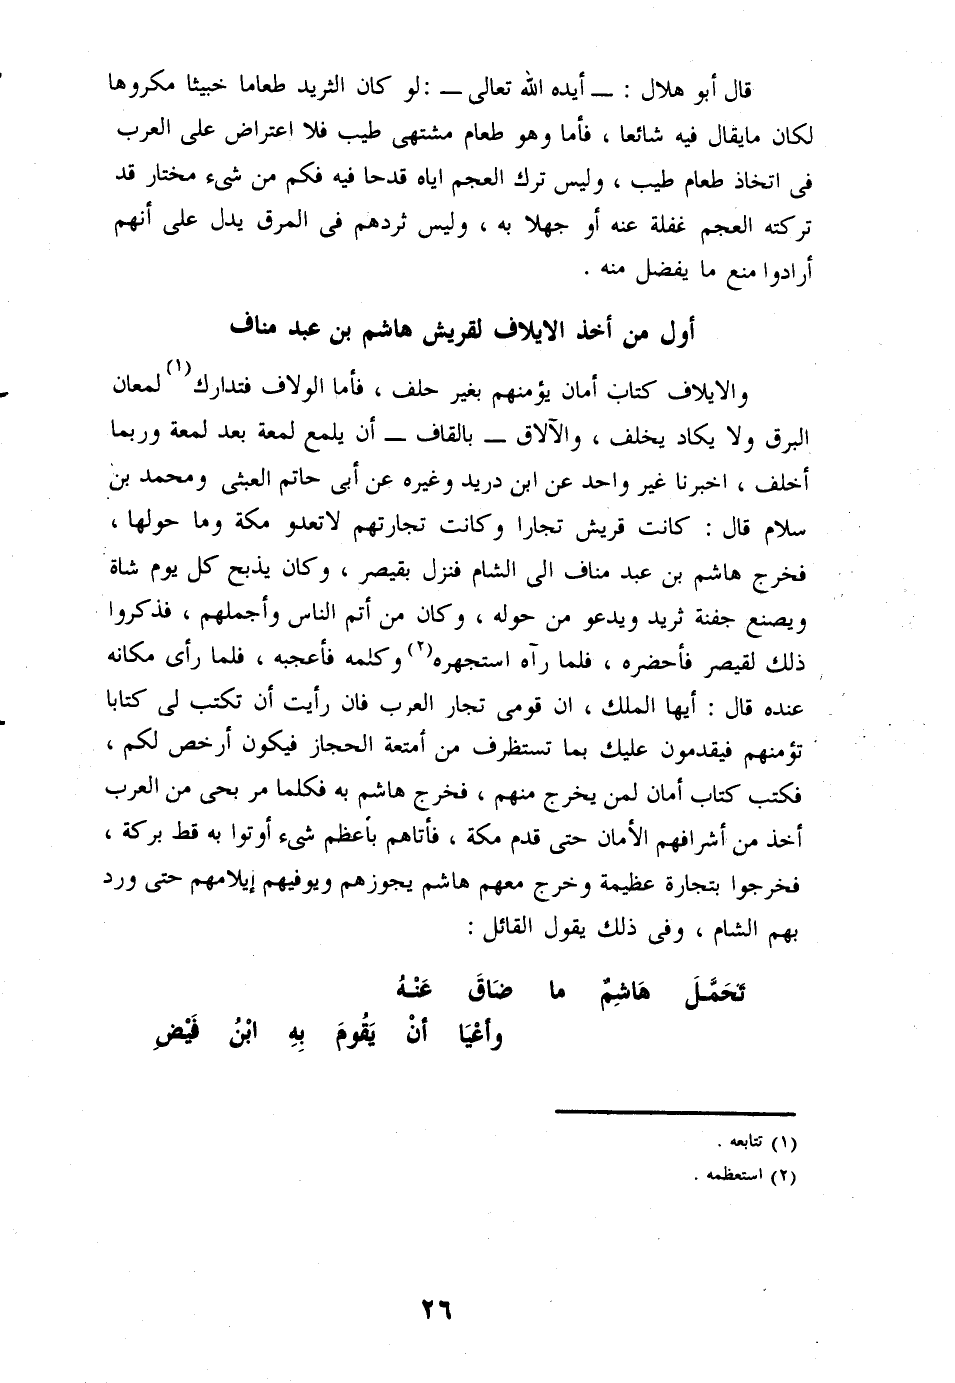 قال أبو هلال : ــ أيده الله تعالى ــ :لو كان الثريد طعاما خبيثا مكروها
لكان مايقال فيه شائعا ، فأما وهو طعام مشتهى طيب فلا اعتراض على العرب
فى اتخاذ طعام طيب ، وليس ترك العجم اياه قدحا فيه فكم من شىء مختار قد
تركته العجم غفلة عنه أو جهلا به ، وليس ثردهم فى المرق يدل على أنهم
أرادوا منع ما يفضل منه .
أول من أخذ الايلاف لقريش هاشم بن عبد مناف
والايلاف كتاب أمان يؤمنهم بغير حلف ، فأما الولاف فتدارك(١) لمعان
البرق ولا يكاد يخلف ، والآلاق ــ بالقاف ــ أن يلمع لمعة بعد لمعة وربما
أخلف ، اخبرنا غير واحد عن ابن دريد وغيره عن أبى حاتم العبثى ومحمد بن
سلام قال : كانت قريش تجارا وكانت تجارتهم لاتعدو مكة وما حولها ،
فخرج هاشم بن عبد مناف الى الشام فنزل بقيصر ، وكان يذبح كل يوم شاة
ويصنع جفنة ثريد ويدعو من حوله ، وكان من أتم الناس وأجملهم ، فذكروا
ذلك لقيصر فأحضره ، فلما رآه استجهره(٢) وكلمه فأعجبه ، فلما رأى مكانه
عنده قال : أيها الملك ، ان قومى تجار العرب فان رأيت أن تكتب لى كتابا
تؤمنهم فيقدمون عليك بما تستظرف من أمتعة الحجاز فيكون أرخص لكم ،
فكتب كتاب أمان لمن يخرج منهم ، فخرج هاشم به فكلما مر بحى من العرب
أخذ من أشرافهم الأمان حتى قدم مكة ، فأتاهم بأعظم شىء أوتوا به قط بركة ،
فخرجوا بتجارة عظيمة وخرج معهم هاشم يجوزهم ويوفيهم إيلامهم حتى ورد
بهم الشام ، وفى ذلك يقول القائل :
تَحَمَّلَ هَاشِمٌ ما ضَاقَ عَنْهُ
وأعْيَا أنْ يَقُومَ بِهِ ابْنُ فَيْضِ
(١) تتابعه .
(٢) استعظمه .
٢٦